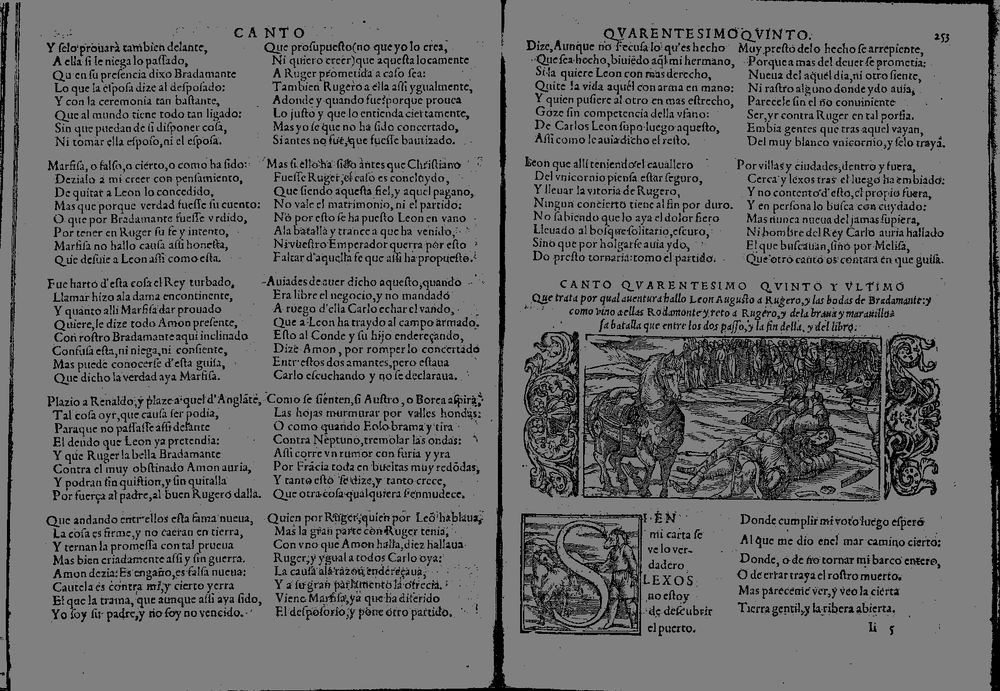 CANTO
Y selo prouarà tambien delante,
A ella si le niega lo passado,
Qu en su presencia dixo Bradamante
Lo que la esposa dize al desposado:
Y con la ceremonia tan bastante,
Que al mundo tiene todo tan ligado:
Sin que puedan de si disponer cosa,
Ni tomar ella esposo, ni el esposa.
Marfisa, o falso, o cierto, o como ha sido:
Dezialo a mi creer con pensamiento,
De quitar a Leon lo concedido,
Mas que porque verdad fuesse su cuento:
O que por Bradamante fuesse vrdido,
Por tener en Ruger su fe y intento,
Marfisa no hallo causa assi honesta,
Que desuie a Leon assi como esta.
Fue harto d'esta cosa el Rey turbado,
Llamar hizo ala dama encontinente,
Y quanto alli Marfisa dar prouado
Quiere, le dize todo Amon presente,
Con rostro Bradamante aqui inclinado
Confusa està, ni niega, ni consiente,
Mas puede conocerse d'esta guisa,
Que dicho la verdad aya Marfisa.
Plazio a Renaldo, y plaze a quel d'Anglãte,
Tal cosa oyr, que causa ser podia,
Paraque no passasse assi delante
El deudo que Leon ya pretendia:
Y que Ruger la bella Bradamante
Contra el muy obstinado Amon auria,
Y podran sin quistion, y sin quitalla
Por fuerça al padre, al buen Rugero dalla.
Que andando entr'ellos esta fama nueua,
La cosa es firme, y no caeran en tierra,
Y ternan la promessa con tal prueua
Mas bien criadamente assi y sin guerra.
Amon dezia: Es engaño, es falsa nueua:
Cautela es contra mi, y cierto yerra
El que la trama, que aunque assi aya sido,
Yo soy su padre, y no soy no vencido.
Que prosupuesto (no que yo lo crea,
Ni quiero creer) que aquesta locamente
A Ruger prometida a caso sea:
Tambien Rugero a ella assi ygualmente,
Adonde y quando fues porque prouea
Lo justo y que lo entienda ciertamente,
Mas yo se que no ha sido concertado,
Si antes no fue, que fuesse bautizado.
Mas si ello ha sido antes que Christiano
Fuesse Ruger, el caso es concluydo,
Que siendo aquesta fiel, y aquel pagano,
No vale el matrimonio, ni el partido:
No por esto se ha puesto Leon en vano
Ala batalla y trance a que ha venido,
Ni vuestro Emperador querra por esto
Faltar d'aquella fe que assi ha propuesto.
Auiades de auer dicho aquesto, quando
Era libre el negocio, y no mandado
A ruego d'ella Carlo echar el vando,
Que a Leon ha traydo al campo armado.
Esto al Conde y su hijo endereçando,
Dize Amon, por romper lo concertado
Entr'estos dos amantes, pero estaua
Carlo escuchando y no se declaraua.
Como se sienten, si Austro, o Borea aspira,
Las hojas murmurar por valles hondas:
O como quando Eolo brama y tira
Contra Neptuno, tremolar las ondas:
Assi corre vn rumor con furia y yra
Por Frãcia toda en bueltas muy redõdas,
Y tanto esto se dize, y tanto crece,
Que otra cosa qualquiera s'enmudece.
Quien por Ruger, quien por Leõ hablaua,
Mas la gran parte con Ruger tenia,
Con vno que Amon halla, diez hallaua
Ruger, y ygual a todos Carlo oya:
La causa ala razon endereçaua,
Y a su gran parlamento la ofrecia.
Viene Marfisa, ya que ha diferido
El desposorio, y pone otro partido.
QVARENTESIMO QVINTO. 253
Dize, Aunque no recusa lo qu'es hecho
Que sea hecho, biuiẽdo aqui mi hermano,
Si la quiere Leon con mas derecho,
Quite la vida aquel con arma en mano:
Y quien pusiere al otro en mas estrecho,
Goze sin competencia della vfano:
De Carlos Leon supo luego aquesto,
Assi como le auia dicho el resto.
Leon que alli teniendo el cauallero
Del vnicornio piensa estar seguro,
Y lleuar la vitoria de Rugero,
Ningun concierto tiene al fin por duro.
No sabiendo que lo aya el dolor fiero
Lleuado al bosque solitario, escuro,
Sino que por holgarse auia ydo,
Do presto tornaria: tomo el partido.
Muy presto del o hecho se arrepiente,
Porque a mas del deuer se prometia:
Nueua del aquel dia, ni otro siente,
Ni rastro alguno donde ydo auia,
Parecele sin el no conuiniente
Ser, yr contra Ruger en tal porfia.
Embia gentes que tras aquel vayan,
Del muy blanco vnicornio, y selo trayã.
Por villas y ciudades, dentro y fuera,
Cerca y lexos tras el luego ha embiado:
Y no contento d'esto, el proprio fuera,
Y en persona lo busca con cuydado:
Mas nunca nueua del jamas supiera,
Ni hombre del Rey Carlo auria hallado
El que buscauan, sino por Melisa,
Que otro canto os contara en que guisa.
CANTO QVARENTESIMO QVINTO Y VLTIMO
Que trata por qual auentura hallo Leon Augusto a Rugero, y las bodas de Bradamante: y
como vino a ellas Rodamonte y reto a Rugero, y de la braua y marauillosa
batalla que entre los dos passo, y la fin della, y del libro.
SI EN
mi carta se
ve lo ver-
dadero
LEXOS
no estoy
de descubrir
el puerto.
Donde cumplir mi voto luego espero
Al que me dio en el mar camino cierto:
Donde, o de no tornar mi barco entero,
O de errar traya el rostro muerto.
Mas pareceme ver, y veo la cierta
Tierra gentil, y la ribera abierta.
Ii 5